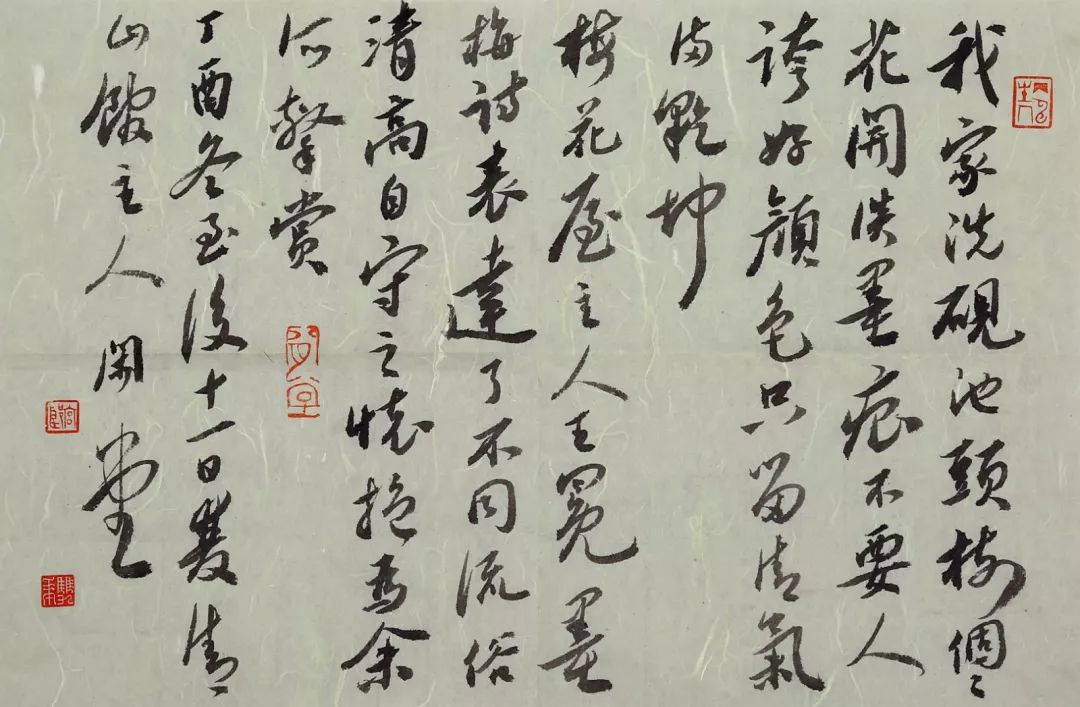 我家洗硯池頭樹個々
花開淡墨痕不要人
誇好顔色只留清氣
滿乾坤
梅花屋主人王冕墨
梅詩表達了不同流俗
清高自守之懷抱為余
所擊賞
丁酉冬至後十一日雙清
山館主人 閑堂